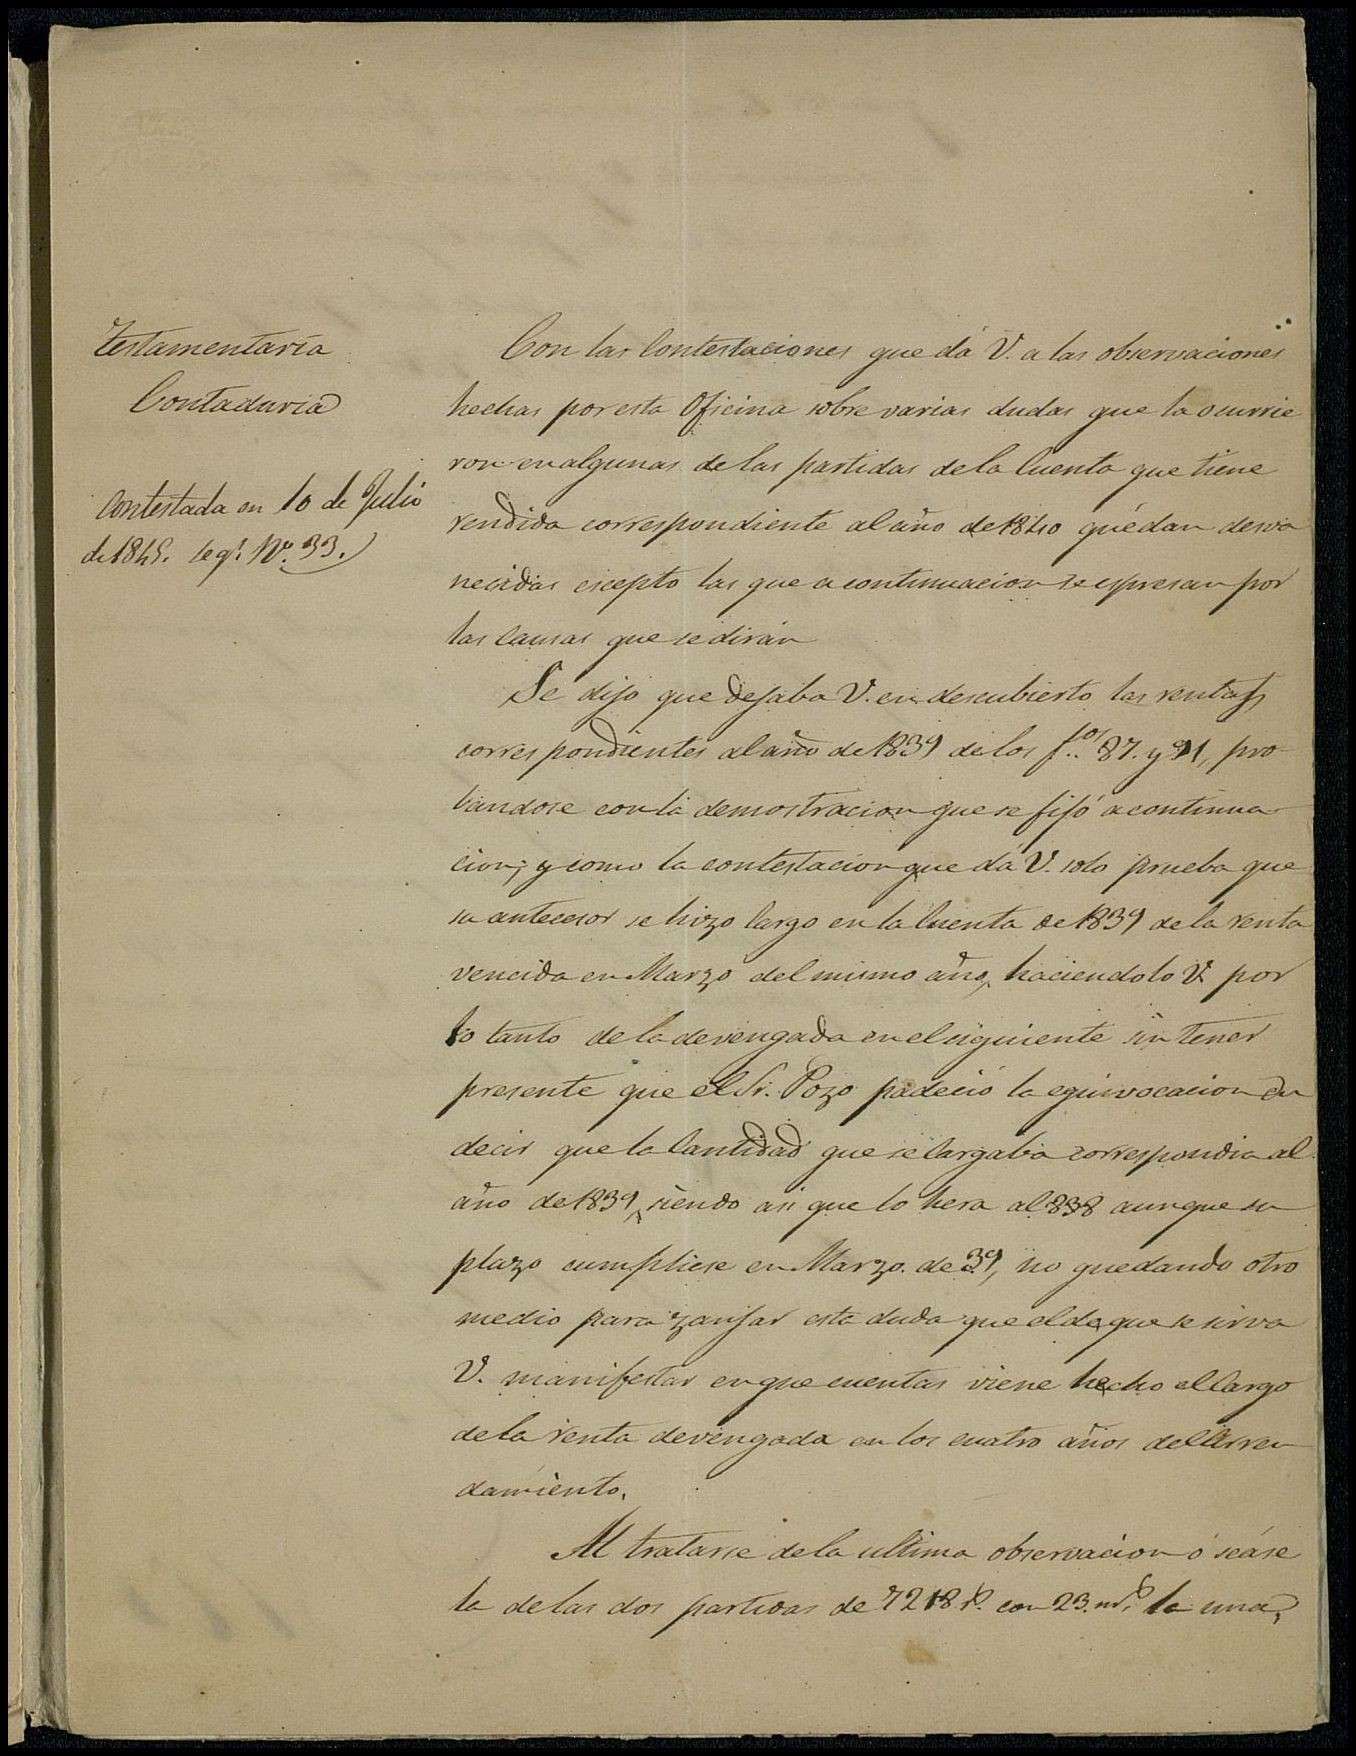 Testamentaría
Contaduría
Contestada en 10 de Julio
de 1845. leg.º Nº. 33.
Con las Contestaciones que dá V. a las observaciones
hechas por esta Oficina sobre varias dudas que la ocurrie
ron en algunas de las partidas de la Cuenta que tiene
rendida correspondiente al año de 1840 quédan desva
necidas escepto las que a continuacion se espresan por
las Causas que se dirán
Se dijo que dejaba V. en descubierto las rentas
correspondientes al año de 1839 de los f.os 87. y 91, pro
bandose con la demostracion que se fijó a continua
cion; y como la contestacion que dá V. solo prueba que
su antecesor se hizo Cargo en la Cuenta de 1839 de la renta
vencida en Marzo del mismo año, haciendolo V. por
lo tanto de la devengada en el siguiente sin tener
presente que el Sr. Pozo padeció la equivocacion en
decir que la Cantidad que se Cargaba correspondia al
año de 1839, siendo asi que lo hera al 838 aunque su
plazo cumpliese en Marzo. de 39, no quedando otro
medio para zanjar esta duda que el de que se sirva
V. manifestar en que cuentas viene hecho el Cargo
de la renta devengada en los cuatro años del Arren
damiento.
Al tratarse de la ultima observacion ó séase
la de las dos partidas de 7218 r.s con 23. m.s la una,